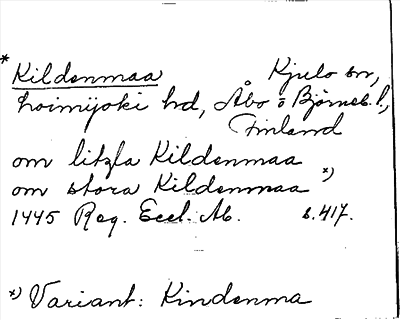 * Kildenmaa Kjulo sn,
Loimijoki hd, Åbo o Björneb. l.,
Finland
om litzla Kildenmaa
om stora Kildenmaa *)
1445 Reg. Eccl. Ab. s. 417.
*) Variant: Kindenma